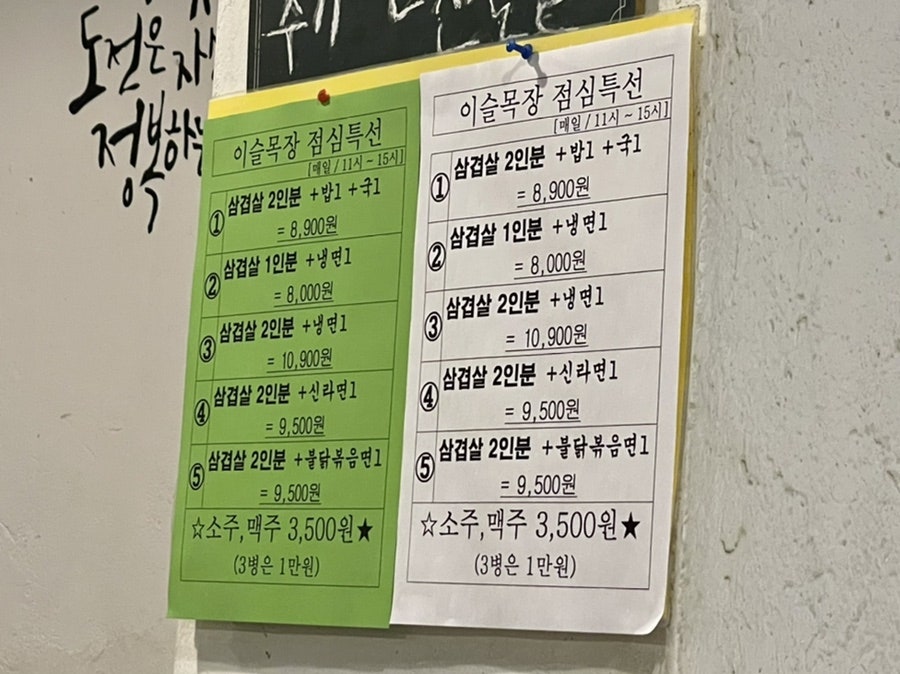 도전은
정복하
이슬목장 점심특선
[매일 / 11시 ~ 15시]
① 삼겹살 2인분 +밥1 +국1
= 8,900원
② 삼겹살 1인분 +냉면1
= 8,000원
③ 삼겹살 2인분 +냉면1
= 10,900원
④ 삼겹살 2인분 +신라면1
= 9,500원
⑤ 삼겹살 2인분 +불닭볶음면1
= 9,500원
☆소주,맥주 3,500원★
(3병은 1만원)
이슬목장 점심특선
[매일 / 11시 ~ 15시]
① 삼겹살 2인분 +밥1 +국1
= 8,900원
② 삼겹살 1인분 +냉면1
= 8,000원
③ 삼겹살 2인분 +냉면1
= 10,900원
④ 삼겹살 2인분 +신라면1
= 9,500원
⑤ 삼겹살 2인분 +불닭볶음면1
= 9,500원
☆소주,맥주 3,500원★
(3병은 1만원)